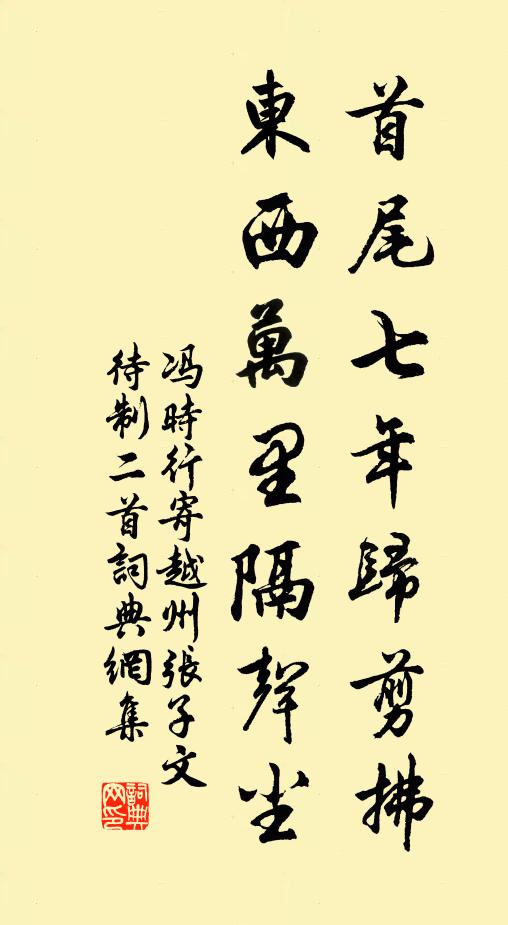 首尾七年歸剪拂
東西萬里隔聲尘
冯時行寄越州張子文
待制二首詞典網集
詞典网印